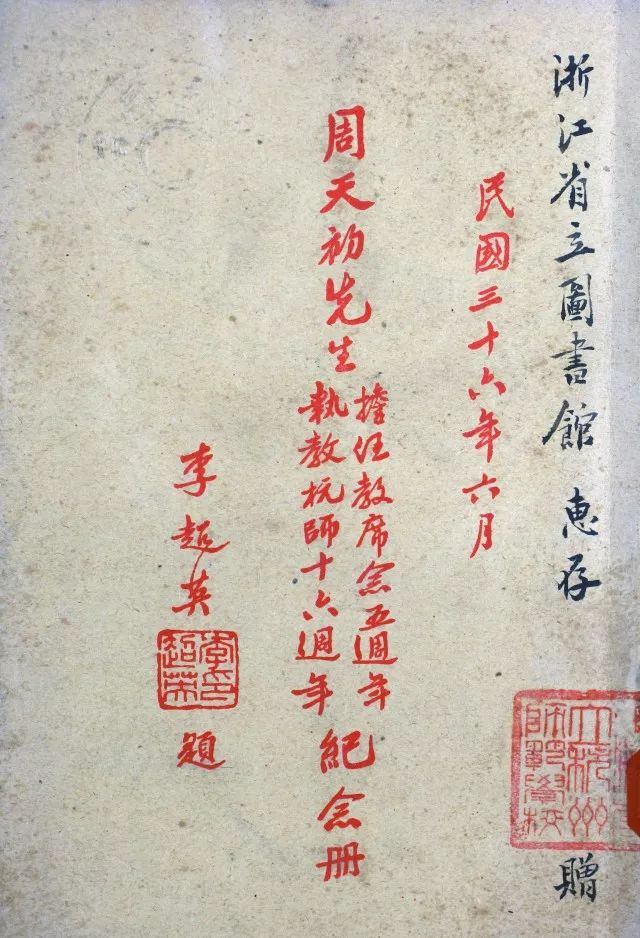 浙江省立圖書館 惠存
立杭州
師範學校
贈
民國三十六年六月
周天初先生
擔任教席念五週年
執教杭師十六週年
紀念册
李超英
李印
超英
題